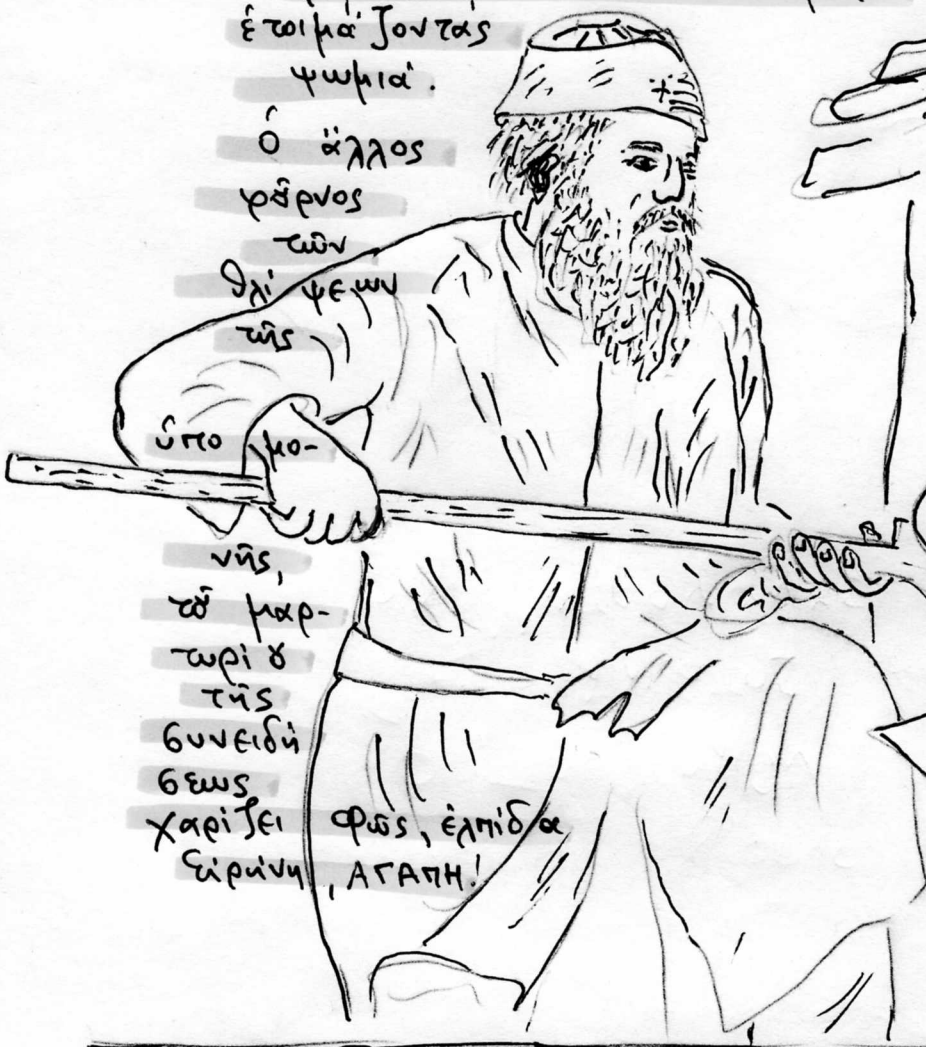 ἑτοιμάζοντας
ψωμιά.
Ὁ ἄλλος
φᾶρνος
τῶν
θλίψεων
τῆς
ὑπομο-
νῆς,
τȣ͂ μαρ-
τυρίȣ
τῆς
συνειδή
σεως
χαρίζει φῶς, ἐλπίδα
εἰρήνη, ΑΓΑΠΗ!